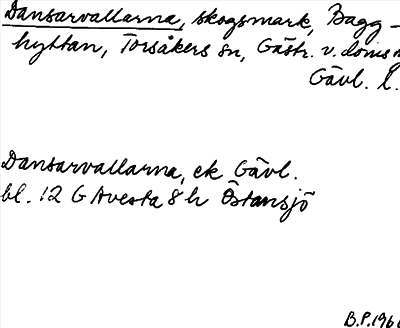 Dansarvallarna, skogsmark, Bagg-
hyttan, Torsåkers sn, Gästr. v. doms
Gävl. l.
Dansarvallarna, ek Gävl.
bl. 12 G Avesta 8 h Östansjö
B.P. 196